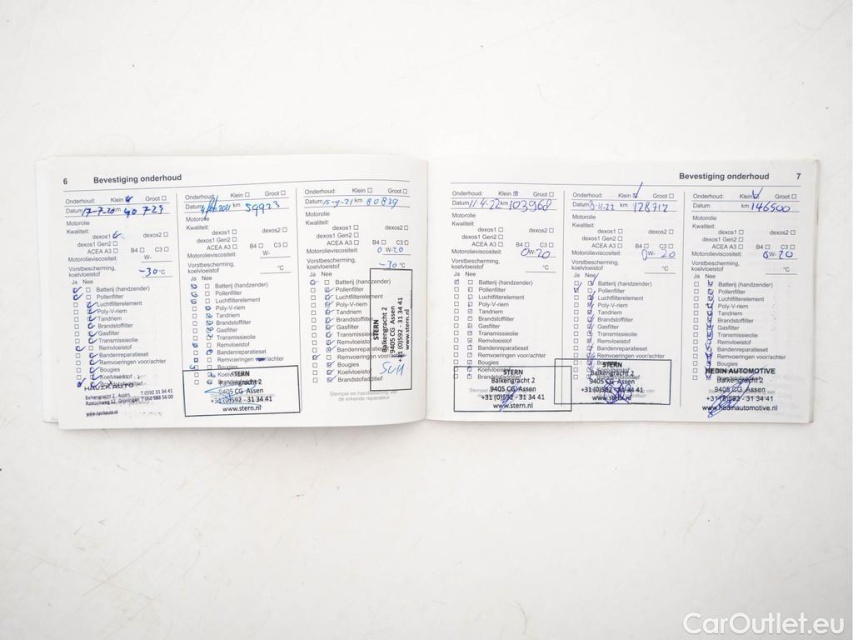 6 Bevestiging onderhoud
Onderhoud: Klein Groot
Datum 17-7-20 km 40 723
Motorolie
Kwaliteit:
dexos1 dexos2
dexos1 Gen2
ACEA A3 B4 C3
Motorolieviscositeit: W-
Vorstbescherming,
koelvloeistof -30 °C
Ja Nee
Batterij (handzender)
Pollenfilter
Luchtfilterelement
Poly-V-riem
Tandriem
Brandstoffilter
Gasfilter
Transmissieolie
Remvloeistof
Bandenreparatieset
Remvoeringen voor/achter
Bougies
Koelvloeistof
Onderhoud: Klein Groot
Datum km 59923
Motorolie
Kwaliteit:
dexos1 dexos2
dexos1 Gen2
ACEA A3 B4 C3
Motorolieviscositeit: W-
Vorstbescherming,
koelvloeistof °C
Ja Nee
Batterij (handzender)
Pollenfilter
Luchtfilterelement
Poly-V-riem
Tandriem
Brandstoffilter
Gasfilter
Transmissieolie
Remvloeistof
Bandenreparatieset
Remvoeringen voor/achter
Bougies
STERN
Balkengracht 2
9405 CG Assen
+31 (0)592 - 31 34 41
www.stern.nl
Onderhoud: Klein Groot
Datum 15-9-21 km 80839
Motorolie
Kwaliteit:
dexos1 dexos2
dexos1 Gen2
ACEA A3 B4 C3
Motorolieviscositeit: 0 W-20
Vorstbescherming,
koelvloeistof -30 °C
Ja Nee
Batterij (handzender)
Pollenfilter
Luchtfilterelement
Poly-V-riem
Tandriem
Brandstoffilter
Gasfilter
Transmissieolie
Remvloeistof
Bandenreparatieset
Remvoeringen voor/achter
Bougies
Koelvloeistof
Brandstoffilter
STERN
Balkengracht 2
9405 CG Assen
+31 (0)592 - 31 34 41
www.stern.nl
Bevestiging onderhoud 7
Onderhoud: Klein Groot
Datum 11-4-22 km 103968
Motorolie
Kwaliteit:
dexos1 dexos2
dexos1 Gen2
ACEA A3 B4 C3
Motorolieviscositeit: 0W-20
Vorstbescherming,
koelvloeistof °C
Ja Nee
Batterij (handzender)
Pollenfilter
Luchtfilterelement
Poly-V-riem
Tandriem
Brandstoffilter
Gasfilter
Transmissieolie
Remvloeistof
Bandenreparatieset
Remvoeringen voor/achter
Bougies
Koelvloeistof
STERN
Balkengracht 2
9405 CG Assen
+31 (0)592 - 31 34 41
www.stern.nl
Onderhoud: Klein Groot
Datum km 128712
Motorolie
Kwaliteit:
dexos1 dexos2
dexos1 Gen2
ACEA A3 B4 C3
Motorolieviscositeit: 0 W-20
Vorstbescherming,
koelvloeistof °C
Ja Nee
Batterij (handzender)
Pollenfilter
Luchtfilterelement
Poly-V-riem
Tandriem
Brandstoffilter
Gasfilter
Transmissieolie
Remvloeistof
Bandenreparatieset
Remvoeringen voor/achter
Bougies
STERN
Balkengracht 2
9405 CG Assen
+31 (0)592 - 31 34 41
www.stern.nl
Onderhoud: Klein Groot
Datum km 146500
Motorolie
Kwaliteit:
dexos1 dexos2
dexos1 Gen2
ACEA A3 B4 C3
Motorolieviscositeit: 0W-20
Vorstbescherming,
koelvloeistof °C
Ja Nee
Batterij (handzender)
Pollenfilter
Luchtfilterelement
Poly-V-riem
Tandriem
Brandstoffilter
Gasfilter
Transmissieolie
Remvloeistof
Bandenreparatieset
Remvoeringen voor/achter
Bougies
HEDIN AUTOMOTIVE
Balkengracht 2
9405 CG Assen
+31 (0)592 - 31 34 41
www.hedinautomotive.nl
CarOutlet.eu